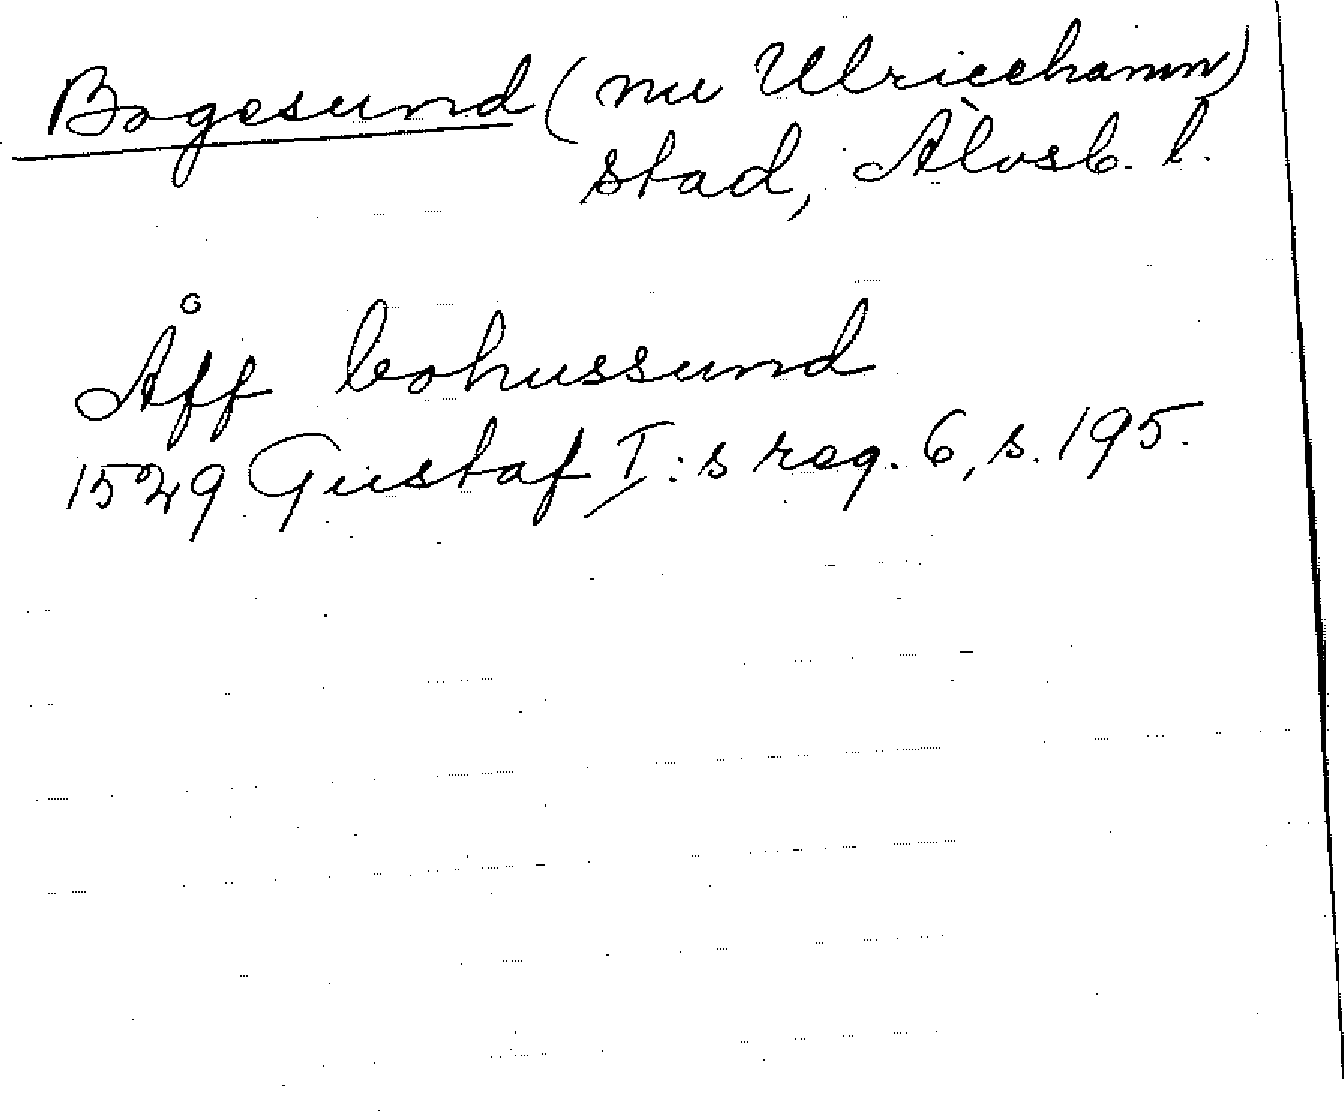 Bogesund (nu Ulricehamn)
stad, Älvsb. l.
Åff bohussund
1529 Gustaf I:s reg. 6, s. 195.